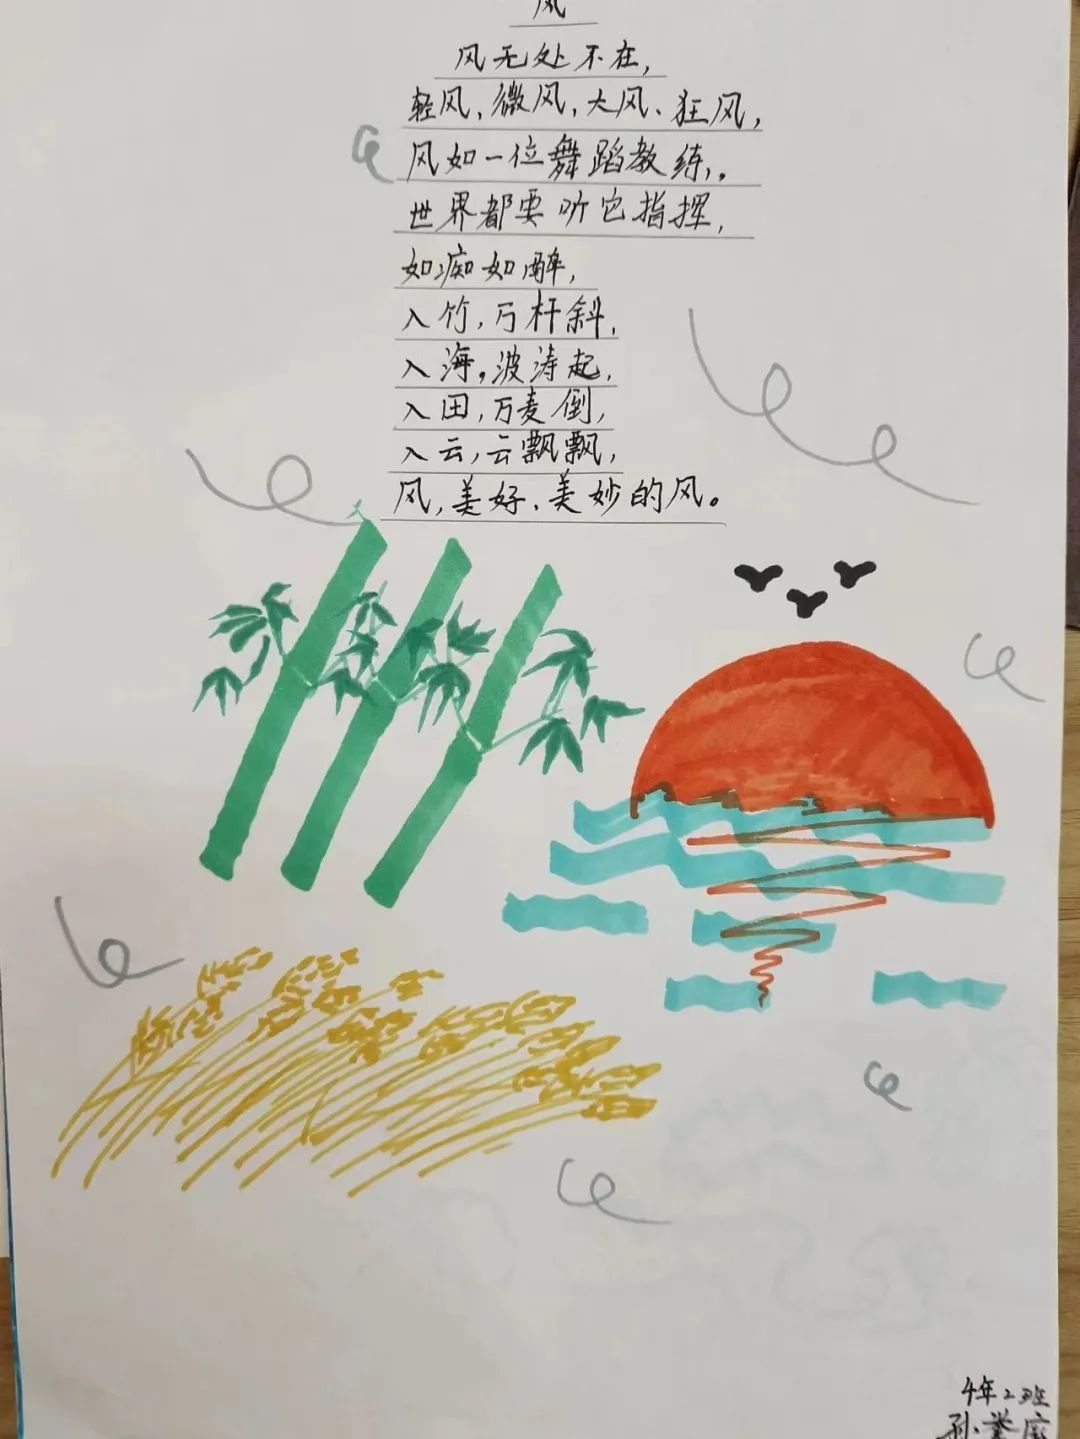 风
风无处不在,
轻风、微风、大风、狂风,
风如一位舞蹈教练,。
世界都要听它指挥,
如痴如醉,
入竹,万杆斜,
入海,波涛起,
入田,万麦倒,
入云,云飘飘,
风,美好、美妙的风。
4年2班
孙